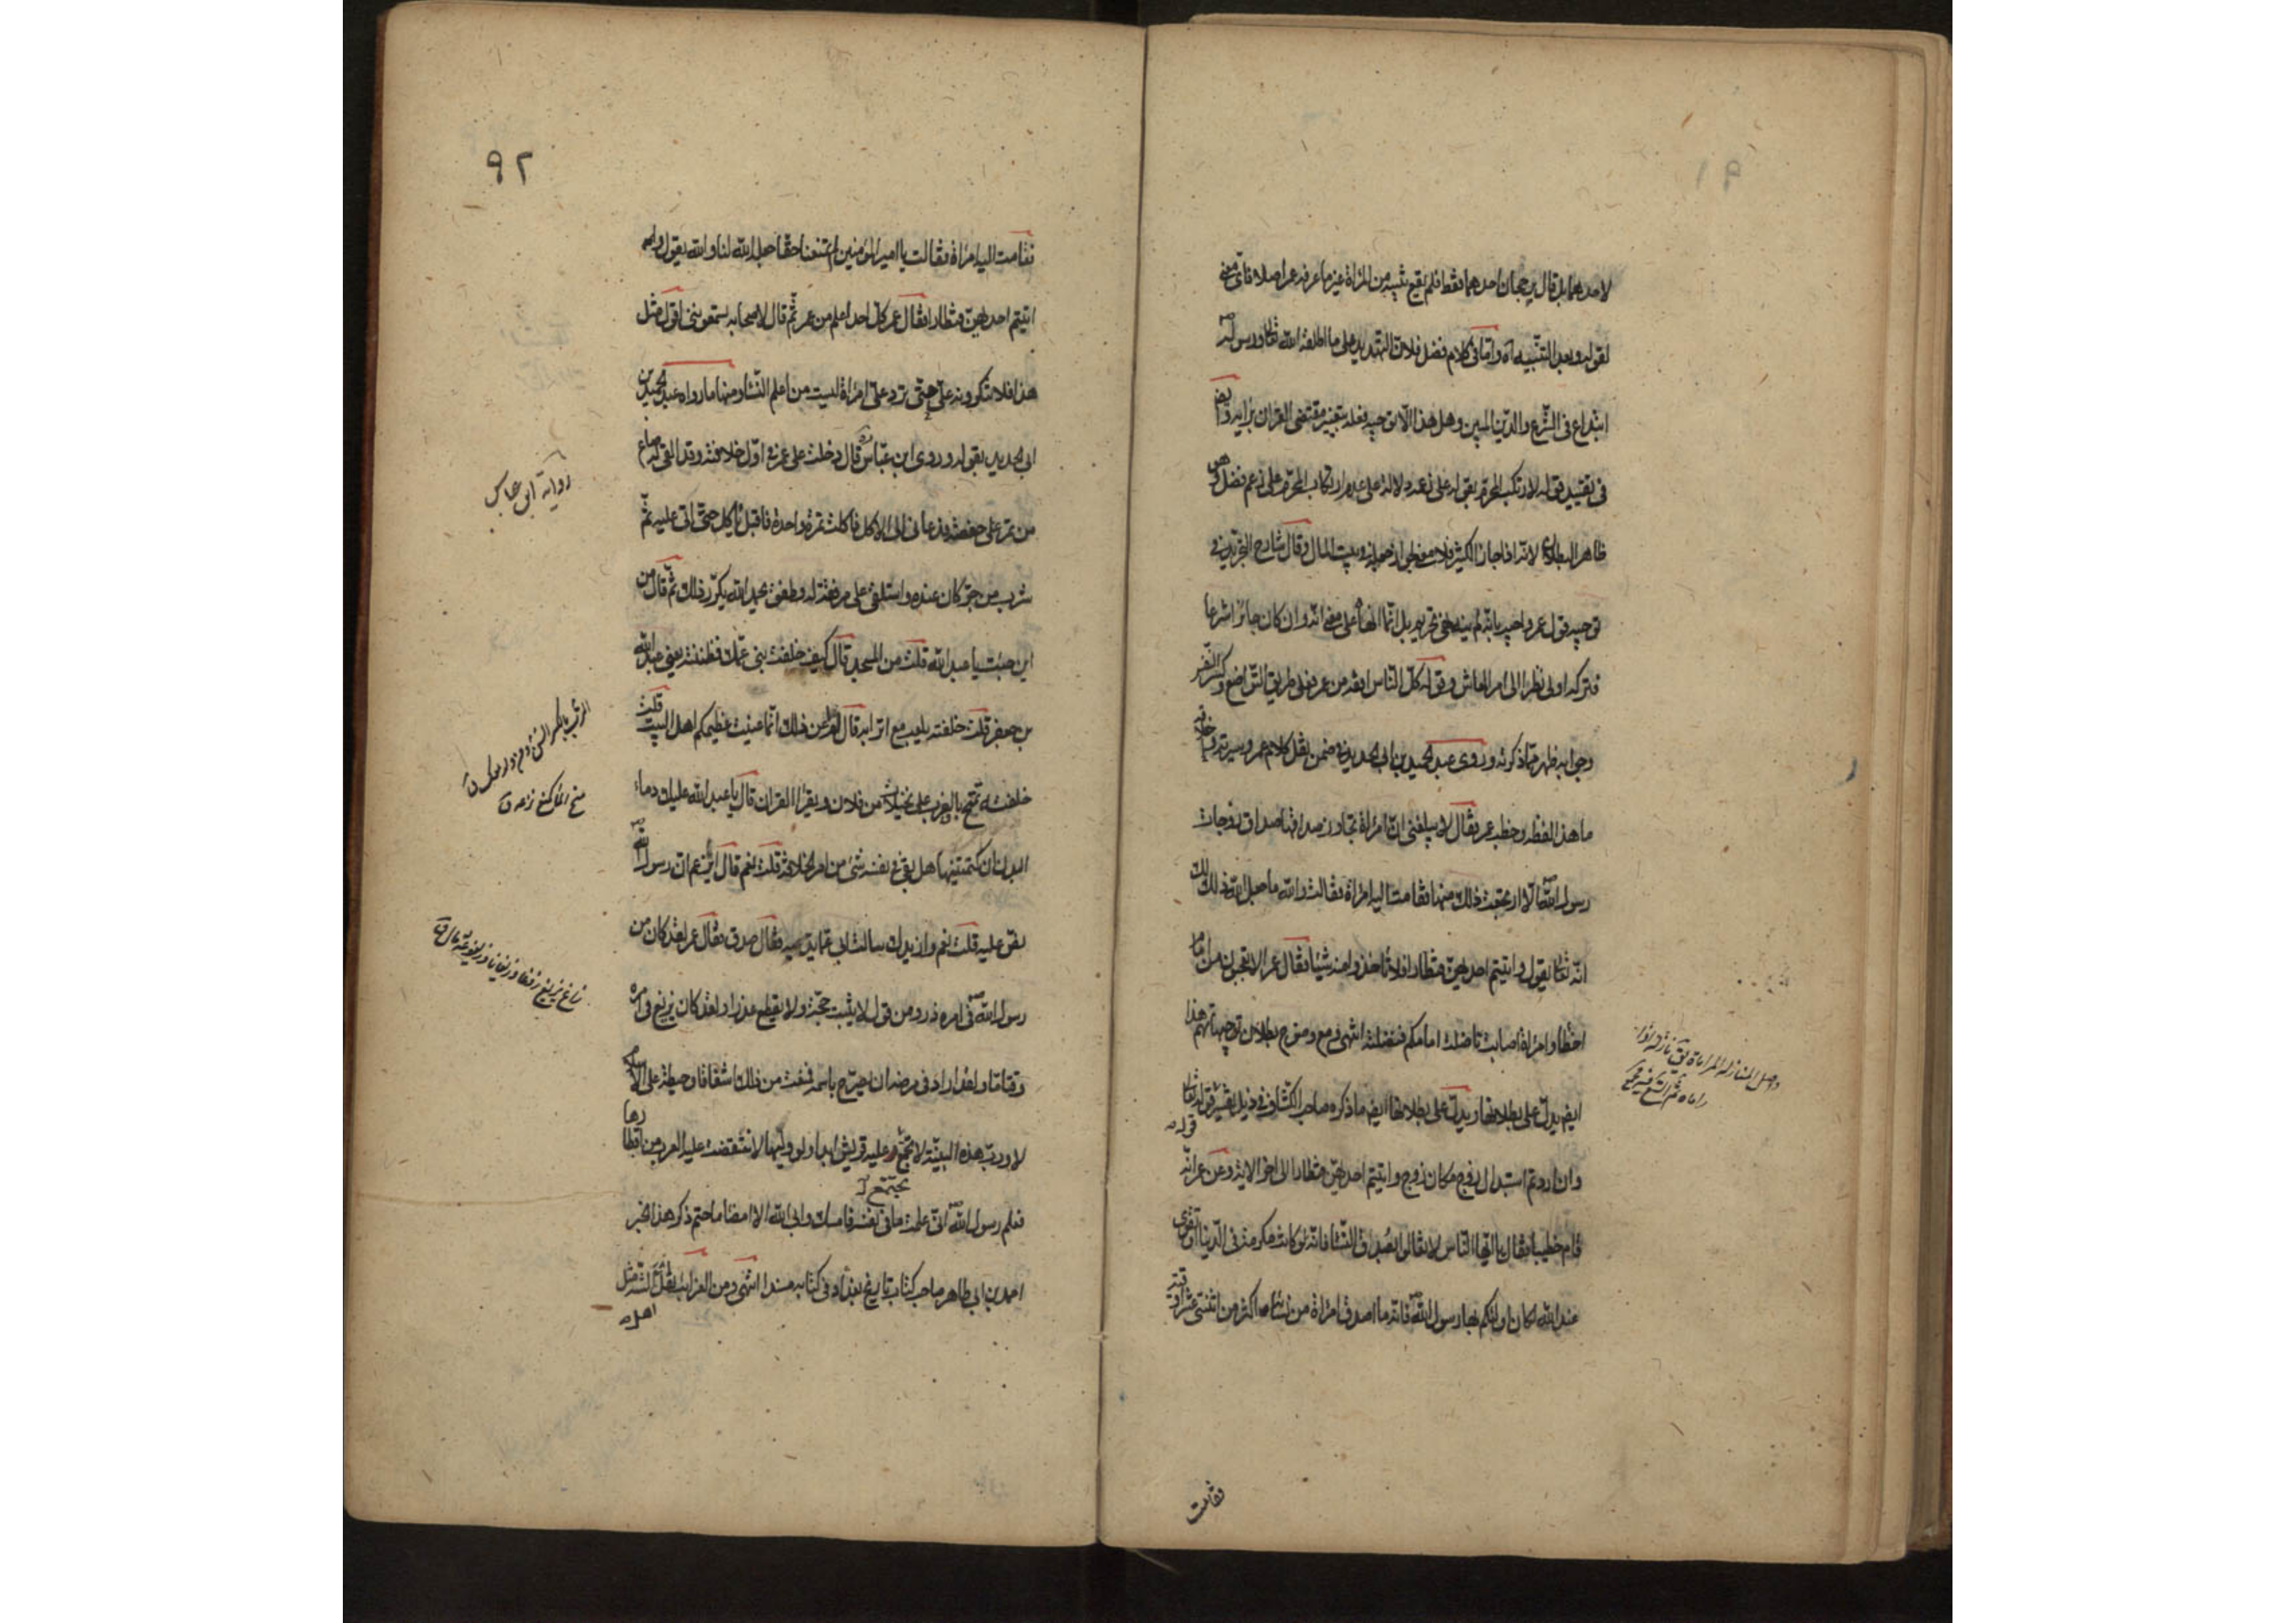 ٩١
لاحدهما بل قال برجحان احدهما فقط فلم يقع تنبيه من المراة غير ما عرفه عمر اصلا فاتى معنى
لقوله وبعد التنبيه اه واما فى كلام فضل فلان التهديد على ما اطلقه الله تعالى ورسوله
ابتداع فى الشرع والدين المبين وهل هذا الا توجيه فعله بتغيير مقتضى القران برايه وايضا
فى تقييد قوله لارتكب المحرم بقوله على زعمه دلالة على عدم ارتكاب المحرم على زعم فضل وهو
ظاهر البطلان لانه اذا جاز الكثير فلا معنى لجواز جعله فى بيت المال وقال شارح التجريد فى
توجيه قول عمر واجيب بانه لم ينه نهى تحريم بل انما نهاه على معنى انه وان كان جائزا شرعا
فتركه اولى نظرا الى امر المعاش وقوله كل الناس افقه من عمر فعلى طريق التواضع وكسر النفس
وجوابه ظهر مما ذكرنه وروى عبد الحميد بن ابى الحديد فى ضمن نقل كلام عمر وسيرته واخلاقه
ما هذا لفظه وخطب عمر فقال لا يبلغنى ان امراة تجاوز صداقها صداق زوجات
رسول الله الا ارتجعت ذلك منها فقامت اليه امراة فقالت والله ما جعل الله ذلك لك
انه تعالى يقول واتيتم احديهن قنطارا فلا تاخذوا منه شيئا فقال عمر الا تعجبون من امام
اخطا وامراة اصابت ناضلت امامكم فنضلته انتهى ومع وضوح بطلان توجيهاتهم هذا
ايضا يدل على بطلانها ويدل على بطلانها ايضا ما ذكره صاحب الكشاف فى ذيل تفسير قوله تعالى
قوله
وان اردتم استبدال زوج مكان زوج واتيتم احديهن قنطارا الى اخر الاية وعن عمر انه
قام خطيبا فقال يا ايها الناس لا تغالوا بصدق النساء فانه لو كانت مكرمة فى الدنيا او تقوى
عند الله لكان اولكم بها رسول الله فانه ما اصدق امراة من نسائه اكثر من اثنتى عشر اوقية
فقامت
٩٢
فقامت اليه امراة فقالت يا امير المؤمنين لم تمنعنا حقا جعله الله لنا والله يقول و
اتيتم احديهن قنطارا فقال عمر كل احد اعلم من عمر ثم قال لاصحابه يسمعوننى اقول مثل
هذا فلا تنكرونه على حتى ترد على امراة ليست من اعلم النساء ومنها ما رواه عبد الحميد بن
ابى الحديد بقوله وروى ابن عباس قال دخلت على عمر فى اول خلافته وقد القى له صاع
من تمر على خصفة فدعانى الى الاكل فاكلت تمرة واحدة فاقبل ياكل حتى اتى عليه ثم
شرب من جر كان عنده واستلقى على مرفقة له وطفق يحمد الله يكرر ذلك ثم قال من
اين جئت يا عبد الله قلت من المسجد قال كيف خلفت بنى عمك فظننته يعنى عبد الله
بن جعفر قلت خلفته يلعب مع اترابه قال لم اعن ذلك انما عنيت عظيمكم اهل البيت قلت
خلفته يمتح بالغرب على نخيلات من فلان ويقرا القران قال يا عبد الله عليك دماء
البدن ان كتمتنيها هل بقى فى نفسه شىء من امر الخلافة قلت نعم قال ايزعم ان رسول الله
نص عليه قلت نعم وازيدك سالت ابى عما يدعيه فقال صدق فقال عمر لقد كان من
رسول الله فى امره ذرو من قول لا يثبت حجة ولا يقطع عذرا ولقد كان يزيغ فى امره
وقتاما ولقد اراد فى مرضه ان يصرح باسمه فمنعت من ذلك اشفاقا وحيطة على الاسلام
لا ورب هذه البنية لا تجتمع عليه قريش ابدا ولو وليها لانتقضت عليه العرب من اقطارها
يجتمع
فعلم رسول الله انى علمت ما فى نفسه فامسك وابى الله الا امضاء ما حتم ذكر هذا الخبر
احمد بن ابى طاهر صاحب كتاب تاريخ بغداد فى كتابه مسندا انتهى ومن الغرايب نقل مثل
رواية ابن عباس